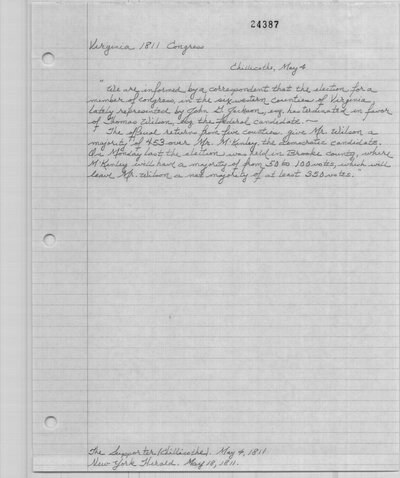 24387
Virginia 1811 Congress
Chillicothe, May 4
"We are informed by a correspondent that the election for a
member of congress, in the six western counties of Virginia,
lately represented by John G. Jackson, esq. has terdinated in favor
of Thomas Wilson, esq. the federal candidate. ~
"The official returns from five counties, give Mr. Wilson a
majority of 453 over Mr. M'Kinley, the democratic candidate.
On Monday last the election was held in Brooke county, where
M'Kinley will have a majority of from 50 to 100 votes, which will
leave Mr. Wilson a net majority of at least 350 votes."
The Supporter (Chillicothe). May 4, 1811.
New York Herald. May 18, 1811.